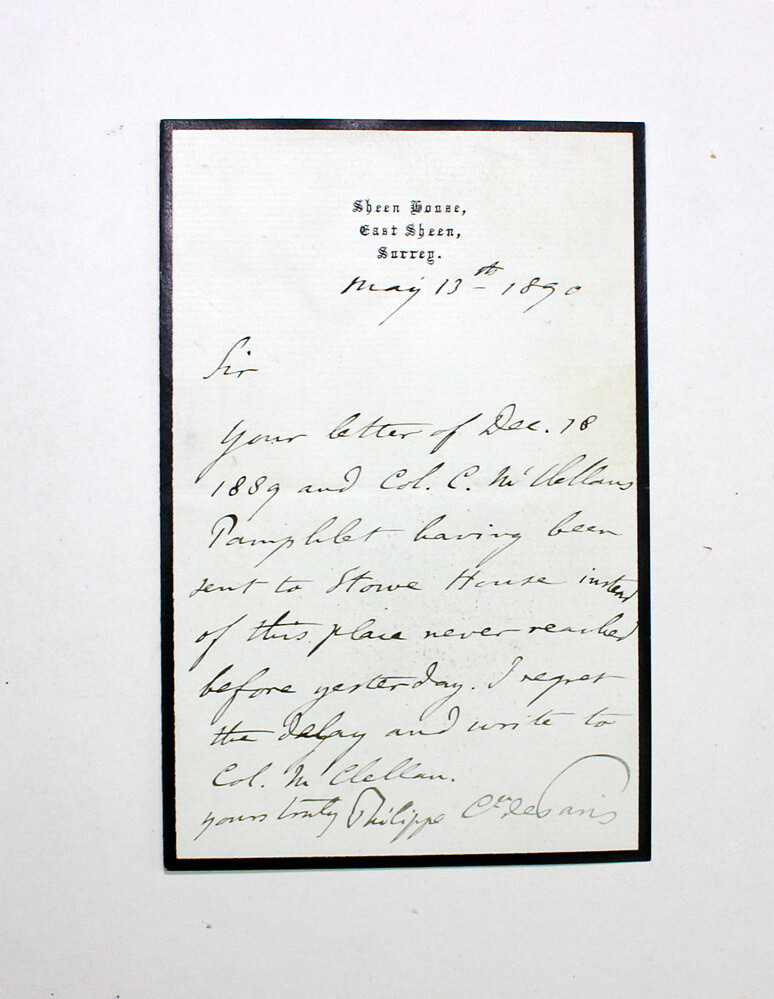 Sheen House,
East Sheen,
Surrey.
May 13th 1890
Sir
Your letter of Dec. 18
1889 and Col. C. McClellans
Pamphlet having been
sent to Stowe House instead
of this place never reached
before yesterday. I regret
the delay and write to
Col. Mc Clellan.
yours truly Philippe Cte de Paris